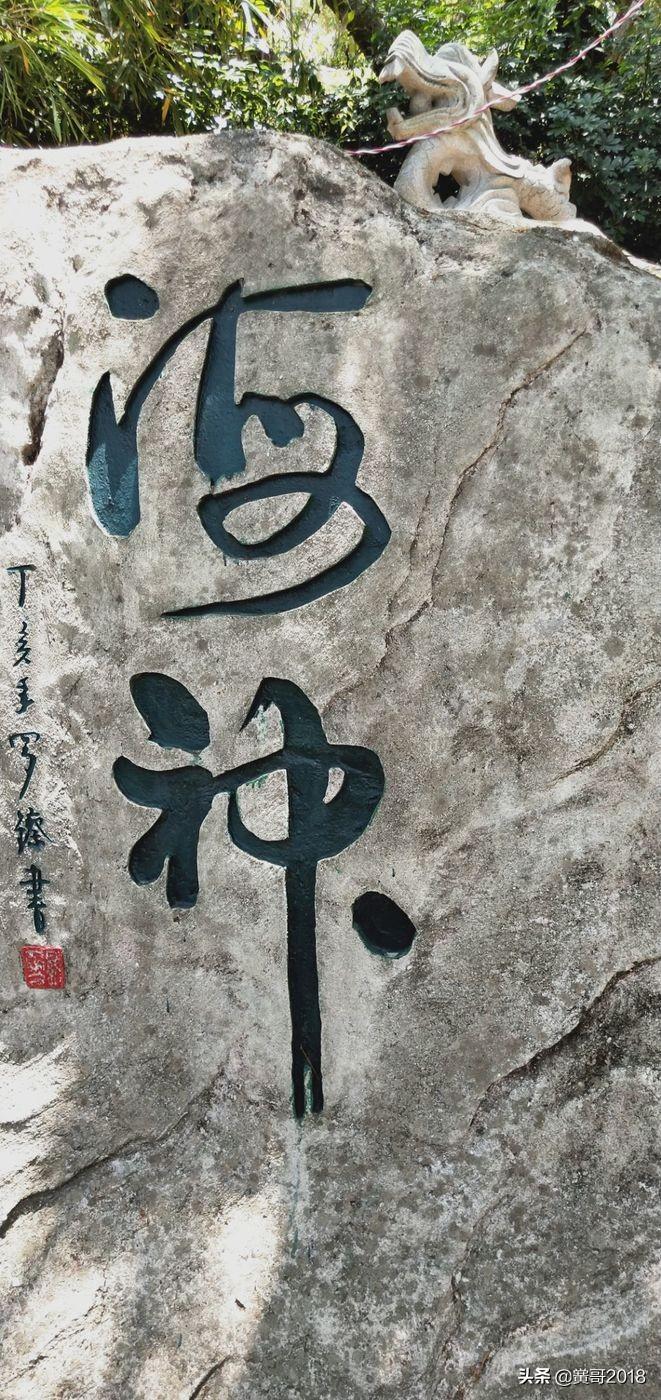 海神
丁亥年罗德书
头条 @黄哥2018